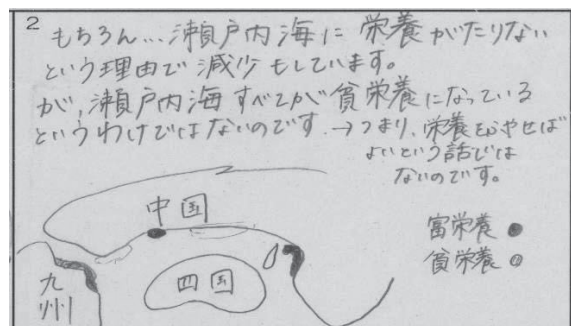 2
もちろん…瀬戸内海に栄養がたりない
という理由で減少もしています。
が、瀬戸内海すべてが貧栄養になっている
というわけではないのです。→つまり、栄養をふやせば
よいという話では
ないのです。
中国
富栄養
貧栄養
四国
九州